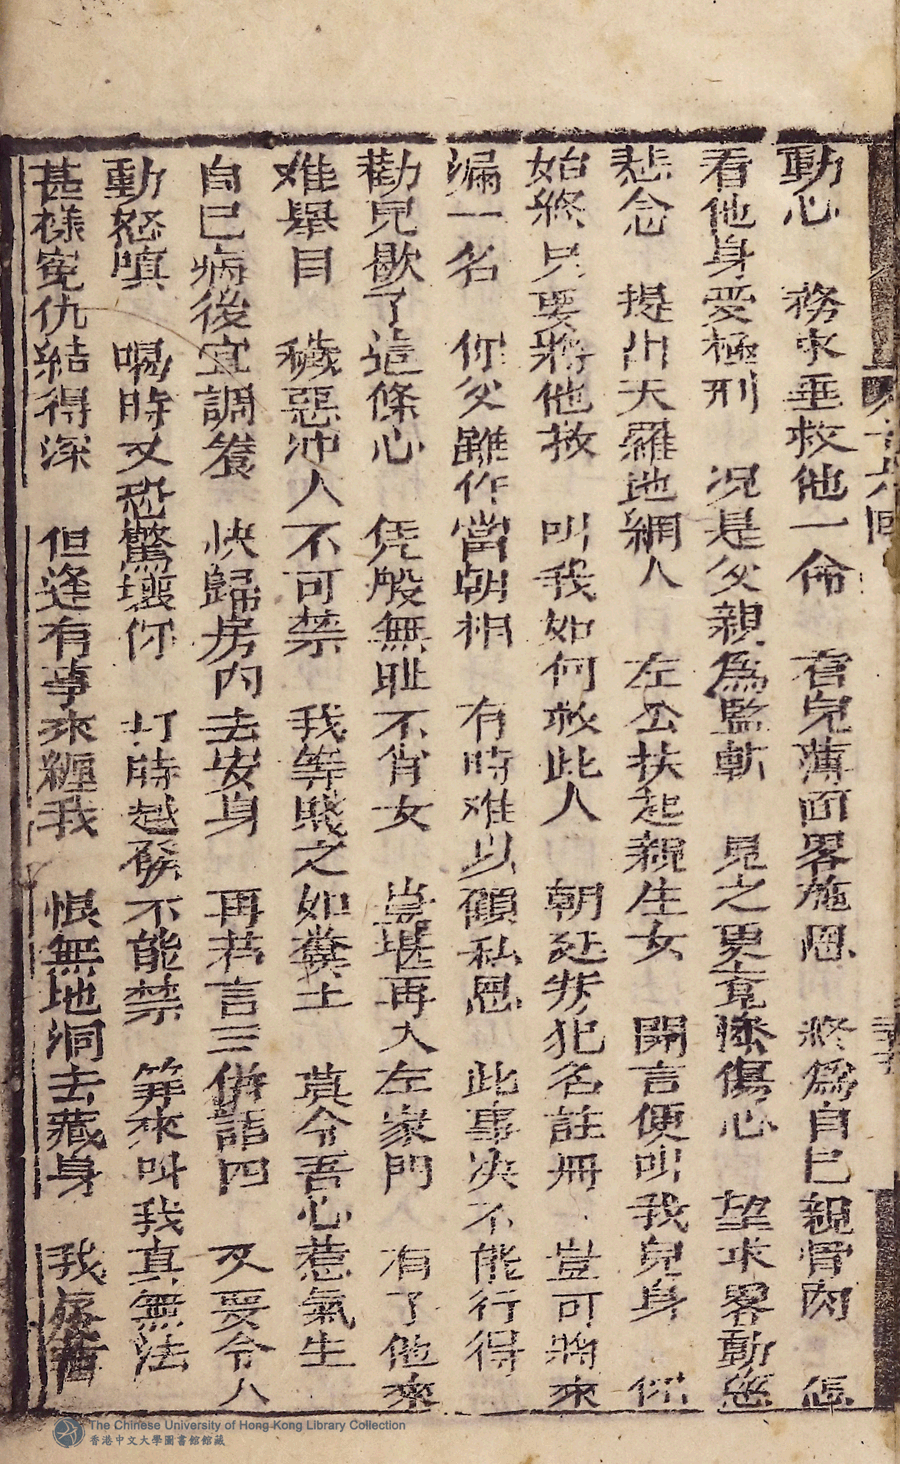 動心　務求垂救他一命　看兒薄面畧施恩　終為自己親骨肉　怎
看他身受極刑　況是父親為監斬　見之更竟慘傷心　望求畧動慈
悲念　提出天羅地網人　左公扶起親生女　開言便叫我兒身　你
始終只要將他救　叫我如何救此人　朝廷叛犯名註冊　豈可將來
漏一名　你父雖作當朝相　有時难以顧私恩　此事决不能行得
勸兒歇了這條心　凭般無耻不肖女　豈堪再入左家門　有了他來
难舉目　穢惡冲人不可禁　我等賤之如糞土　莫令吾心惹氣生
自己病後宜調養　快歸房内去安身　再若言三併語四　又要令人
動怒嗔　喝時又恐驚壞你　打時越發不能禁　算來叫我真無法
甚樣寃仇結得深　但逢有事來纏我　恨無地洞去藏身　我
The Chinese University of Hong Kong Library Collection
香港中文大學圖書館館藏